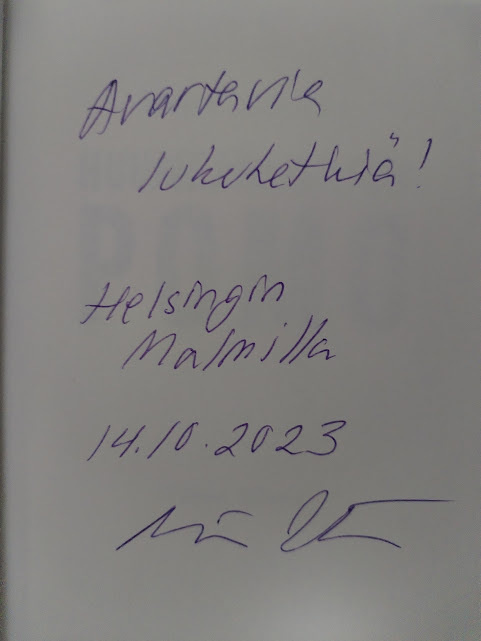 Avartavia
lukuhetkiä!
Helsingin
Malmilla
14.10.2023